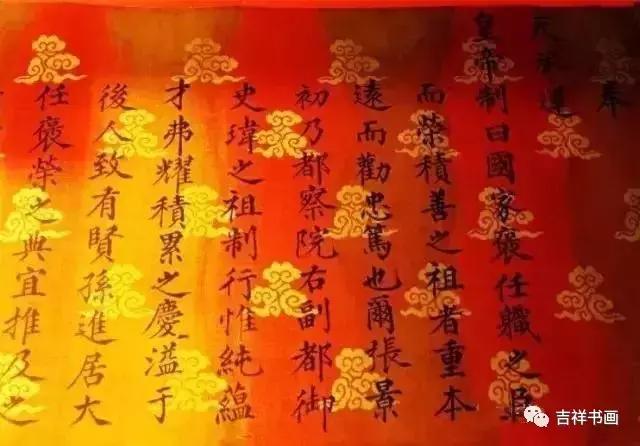 奉
天承運
皇帝制曰國家褒任職之臣
而榮積善之祖者重本
遠而勸忠篤也爾張景
初乃都察院右副都御
史瑋之祖制行惟純蘊
才弗耀積累之慶溢于
後人致有賢孫進居大
任褒榮之典宜推及之
吉祥书画